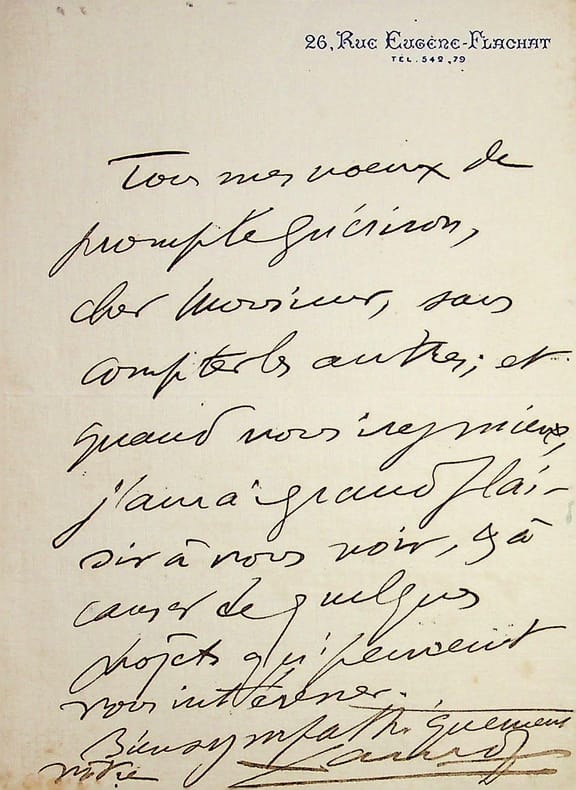 26, Rue Eugène-Flachat
TÉL. 542,79
Tous mes voeux de
prompte guérison,
cher Monsieur, sans
compter les autres ; et
quand vous irez mieux,
j'aurai grand plai-
sir à vous voir, & à
causer de quelques
projets qui peuvent
vous intéresser.
Bien sympathiquement
votre